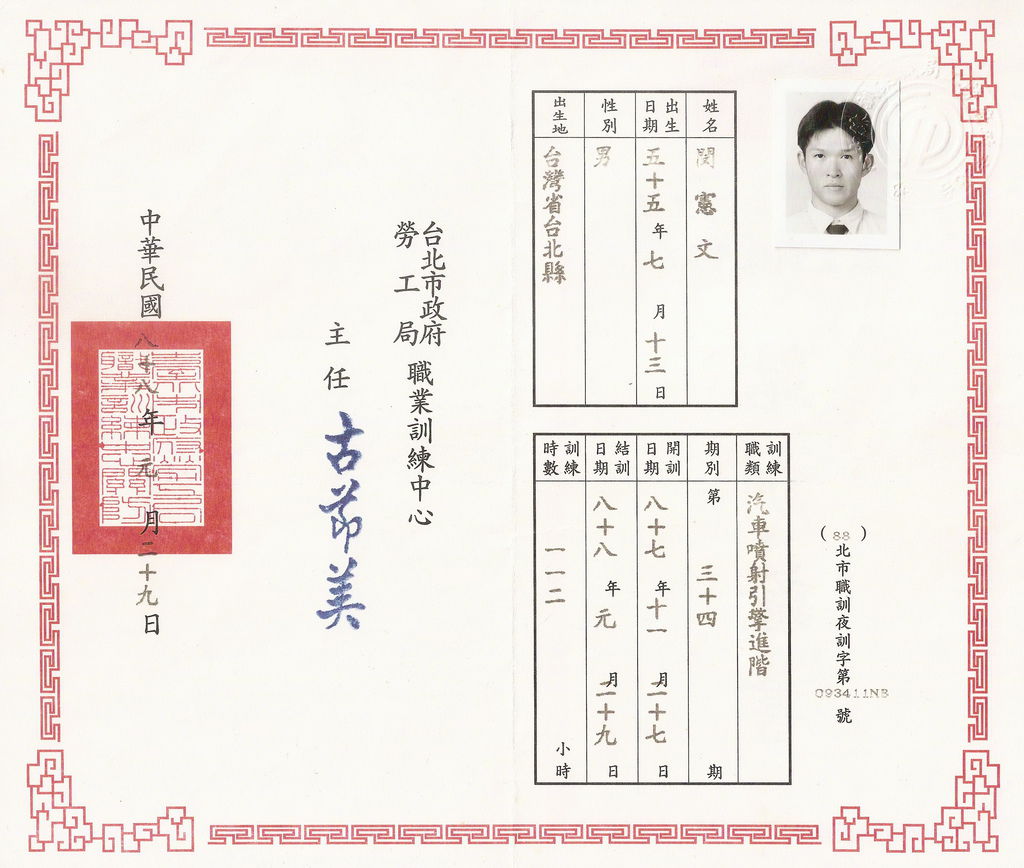 (88)北市職訓夜訓字第093411NB號
姓名 閔憲文
出生日期 五十五年七月十三日
性別 男
出生地 台灣省台北縣
訓練職類 汽車噴射引擎進階
期別 第三十四期
開訓日期 八十七年十一月二十七日
結訓日期 八十八年元月二十九日
訓練時數 一一二小時
台北市政府勞工局職業訓練中心
主任 古菊美
中華民國八十八年元月二十九日